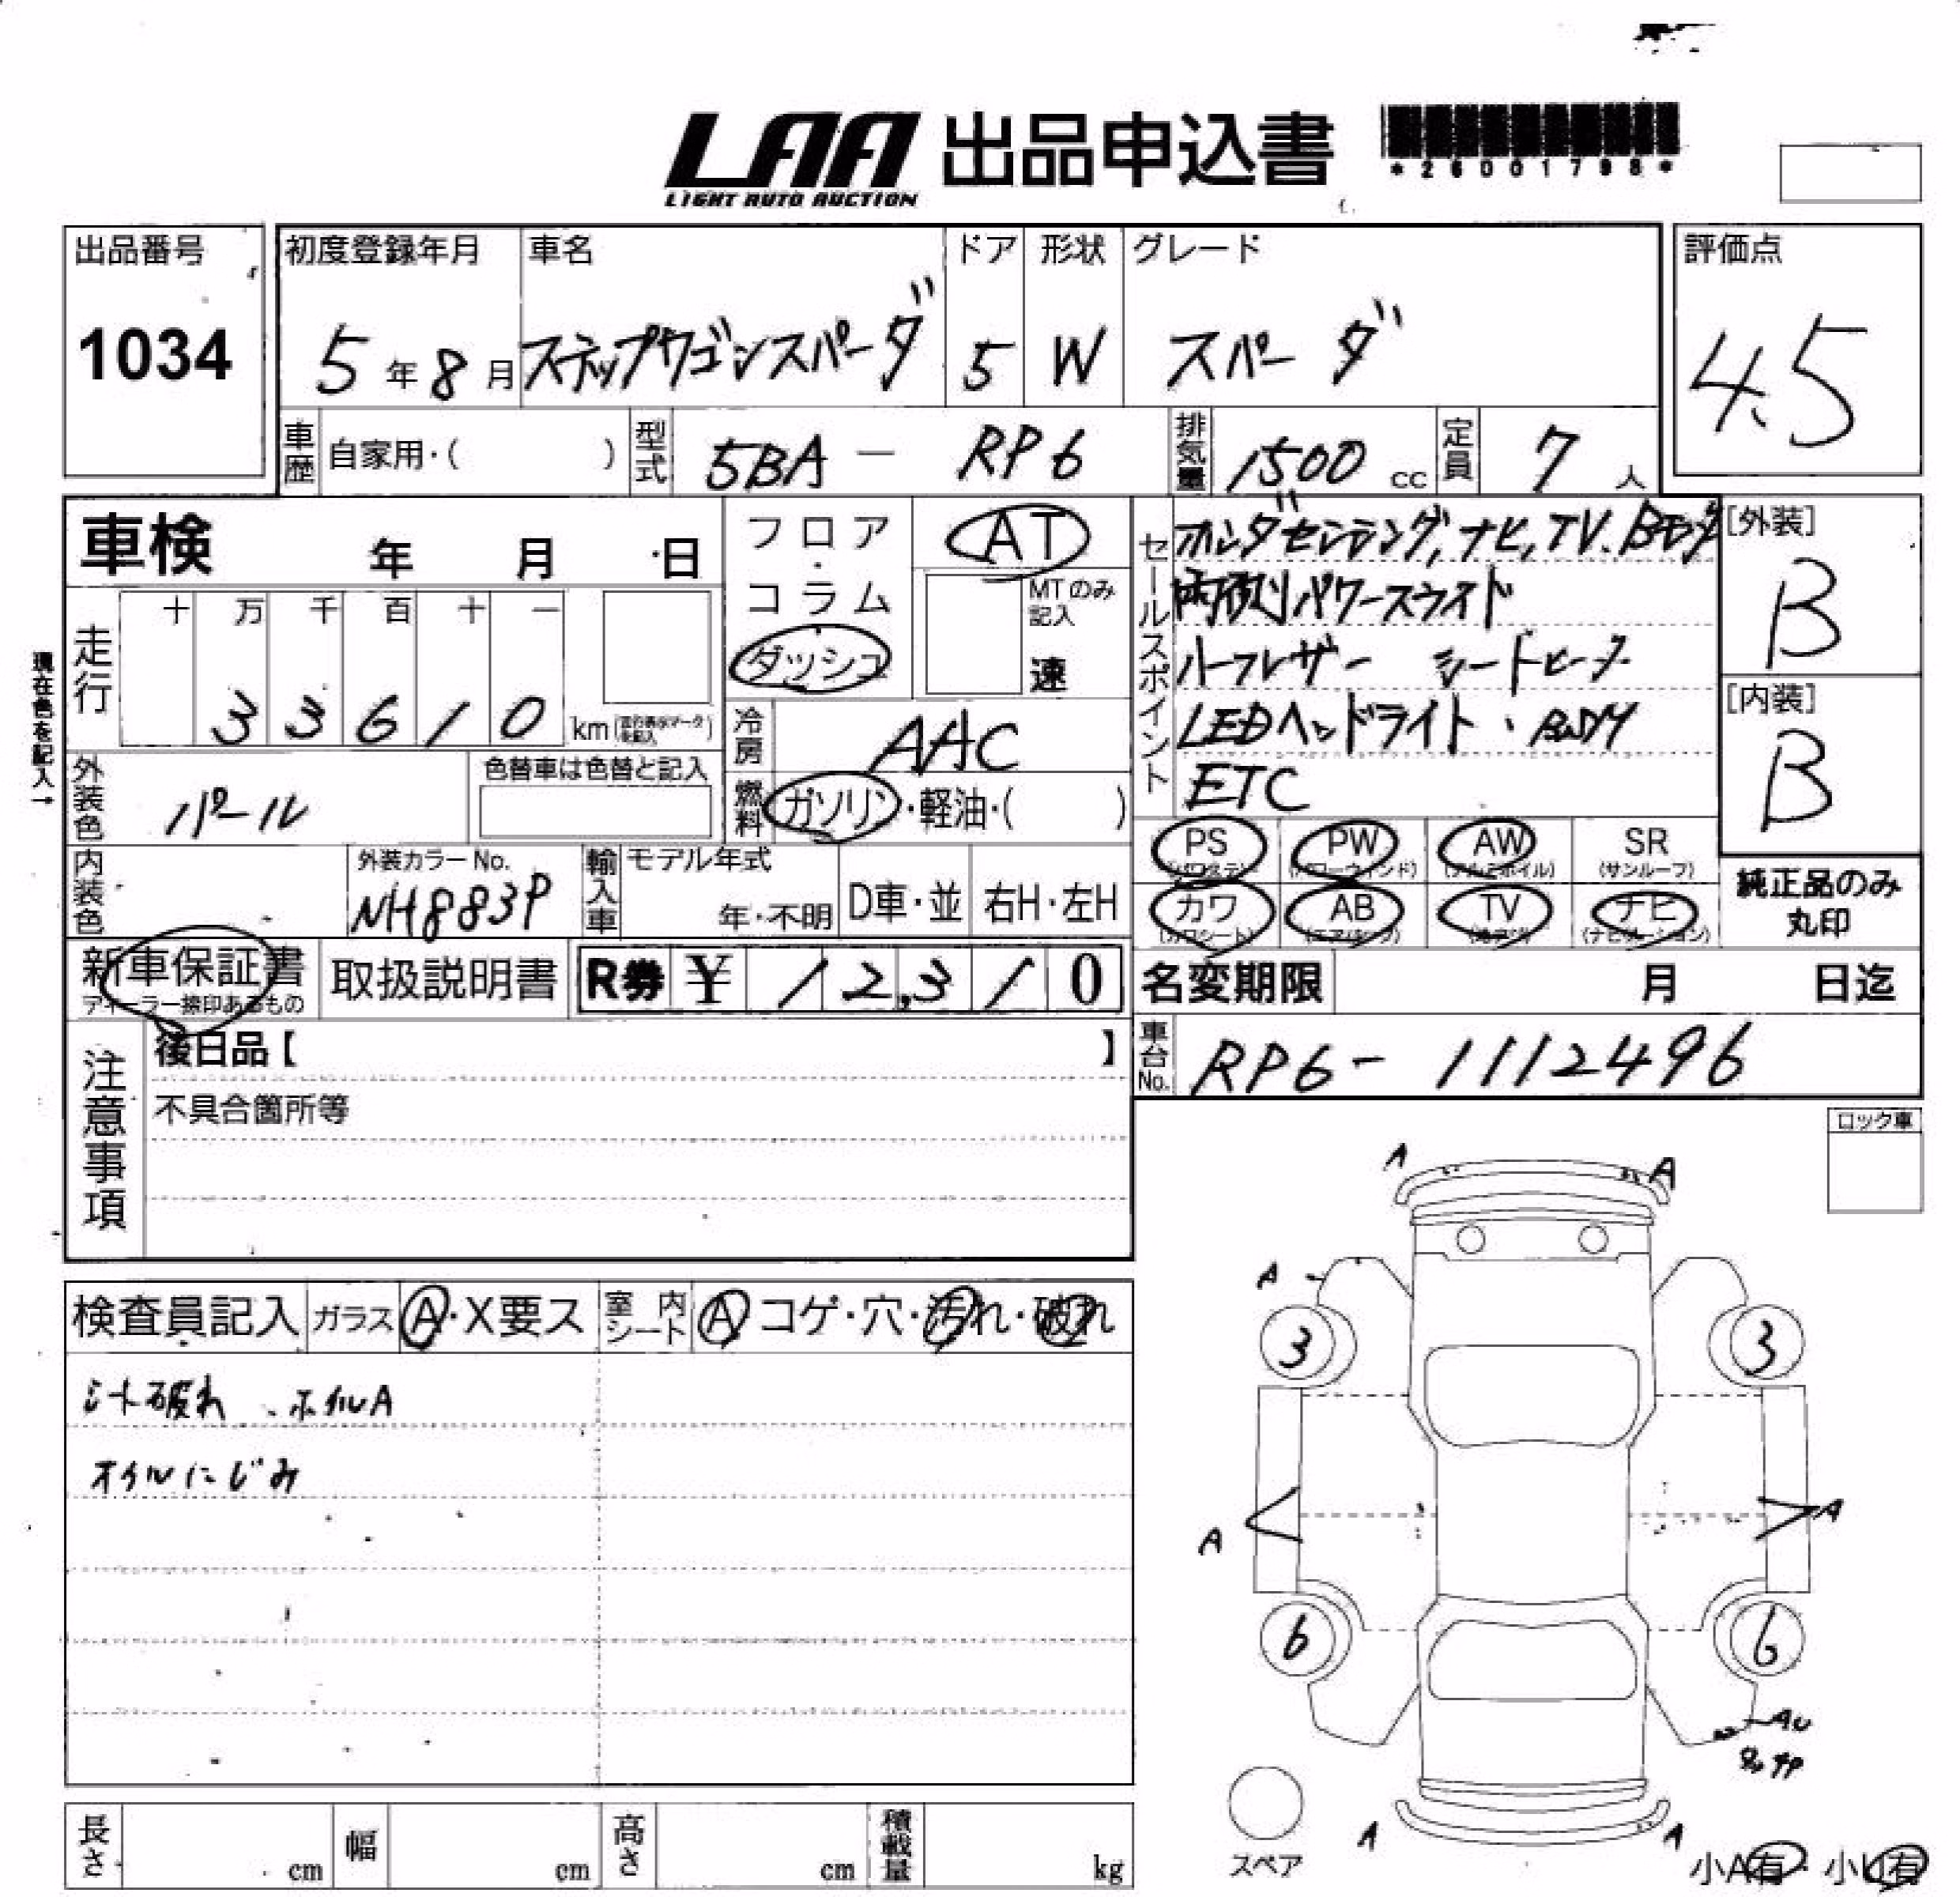 LAA 出品申込書
LIGHT AUTO AUCTION
*26001798*
出品番号
1034
初度登録年月
5年8月
車名
ステップワゴンスパーダ
ドア
5
形状
W
グレード
スパーダ
評価点
4.5
車歴 自家用・( )
型式 5BA - RP6
排気量 1500 cc
定員 7 人
車検 年 月 日
フロア・コラム
ダッシュ
AT
MTのみ記入
速
セールスポイント
ホンダセンシング、ナビ、TV、Bモニタ
両側パワースライド
ハーフレザー シートヒータ
LEDヘッドライト、BSM
ETC
[外装]
B
[内装]
B
現在色を記入→
走行
十 万 千 百 十 一
3 3 6 1 0 km
冷房 AAC
燃料 ガソリン・軽油・( )
外装色 パール
色替車は色替と記入
内装色
外装カラーNo.
NH883P
輸入車
モデル年式
年・不明
D車・並
右H・左H
PS (パワステ)
PW (パワーウィンド)
AW (アルミホイル)
SR (サンルーフ)
カワ (カワシート)
AB (エアバッグ)
TV
ナビ (ナビゲーション)
純正品のみ
丸印
新車保証書
ディーラー捺印あるもの
取扱説明書
R券 ¥ 12,310
名変期限 月 日迄
車台No. RP6-1112496
注意事項
後日品【 】
不具合箇所等
ロック車
検査員記入
ガラス A・X要ス
室内シート A コゲ・穴・汚れ・破れ
シート破れ、ホイルA
オイルにじみ
A A
A
3 3
A A
6 6
AU
A A
スペア
小A有・小U有
長さ cm
幅 cm
高さ cm
積載量 kg